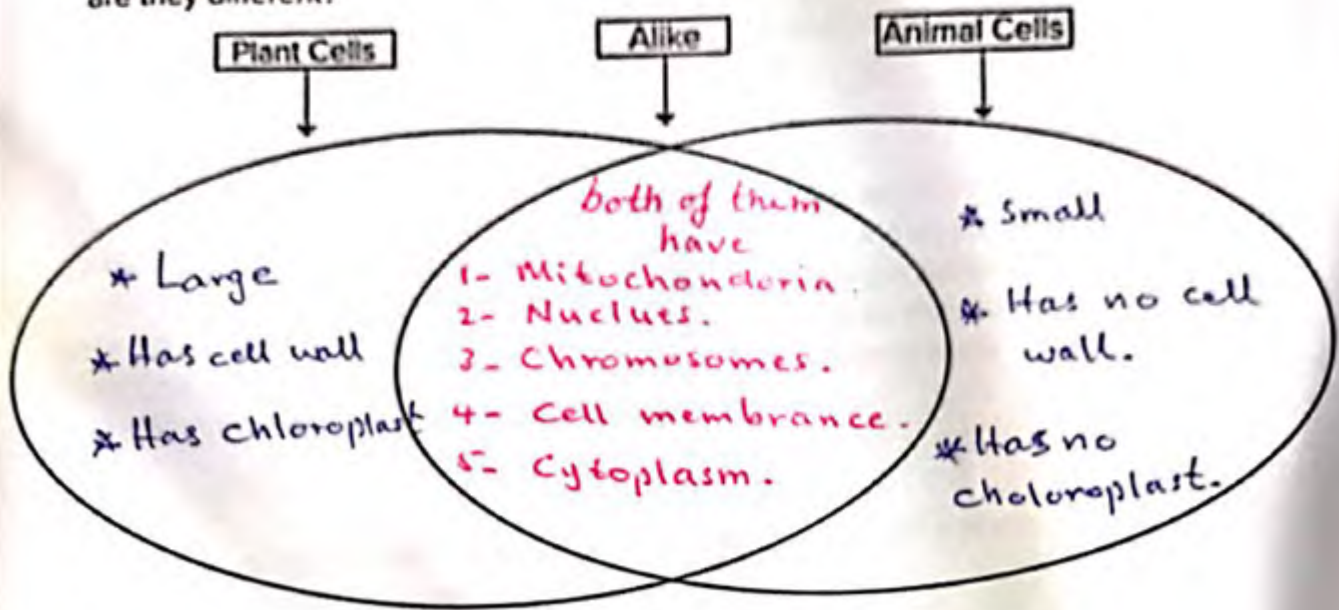 are they different?
Plant Cells
Alike
Animal Cells
* Large
* Has cell wall
* Has chloroplast
both of them
have
1- Mitochondoria.
2- Nuclues.
3- Chromosomes.
4- Cell membrance.
5- Cytoplasm.
* Small
* Has no cell
wall.
* Has no
choloroplast.